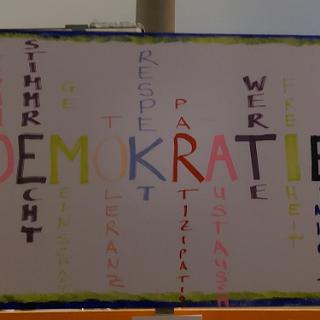 DEMOKRATIE
STIMMRECHT
GEMEINSCHAF
TOLERANZ
RESPEKT
PARTIZIPATIO
AUSTAUSCH
WERTE
FREIHEIT